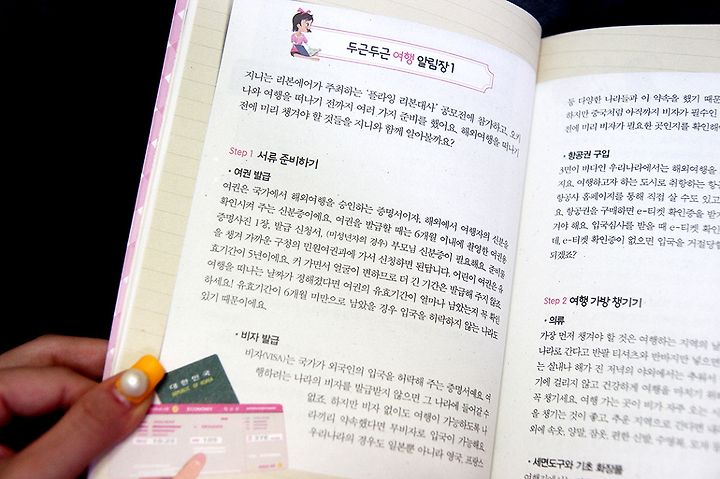 두근두근 여행 알림장 1
지니는 리본에어가 주최하는 '플라잉 리본대사' 공모전에 참가하고, 오키
나와 여행을 떠나기 전까지 여러 가지 준비를 했어요. 해외여행을 떠나기
전에 미리 챙겨야 할 것들을 지니와 함께 알아볼까요?
Step 1 서류 준비하기
• 여권 발급
여권은 국가에서 해외여행을 승인하는 증명서이자, 해외에서 여행자의 신분을
확인시켜 주는 신분증이에요. 여권을 발급할 때는 6개월 이내에 촬영한 여권용
증명사진 1장, 발급 신청서, (미성년자의 경우) 부모님 신분증이 필요해요. 준비물
을 챙겨 가까운 구청의 민원여권과에 가서 신청하면 된답니다. 어린이 여권은 유
효기간이 5년이에요. 커 가면서 얼굴이 변하므로 더 긴 기간은 발급해 주지 않죠.
여행을 떠나는 날짜가 정해졌다면 여권의 유효기간이 얼마나 남았는지 꼭 확인
하세요! 유효기간이 6개월 미만으로 남았을 경우 입국을 허락하지 않는 나라도
있기 때문이에요.
• 비자 발급
비자(VISA)는 국가가 외국인의 입국을 허락해 주는 증명서예요. 여
행하려는 나라의 비자를 발급받지 않으면 그 나라에 들어갈 수
없죠. 하지만 비자 없이도 여행이 가능하도록 나
라끼리 약속했다면 무비자로 입국이 가능해요.
우리나라의 경우도 일본뿐 아니라 영국, 프랑스
대한민국
REPUBLIC OF KOREA
ECONOMY
등 다양한 나라들과 이 약속을 했기 때문
하지만 중국처럼 아직까지 비자가 필수인
전에 미리 비자가 필요한 곳인지를 확인해
• 항공권 구입
3면이 바다인 우리나라에서는 해외여행을
지요. 여행하고자 하는 도시로 취항하는 항공
항공사 홈페이지를 통해 직접 살 수도 있고
요. 항공권을 구매하면 e-티켓 확인증을 받
겨야 해요. 입국심사를 받을 때 e-티켓 확인
데, e-티켓 확인증이 없으면 입국을 거절당할
되겠죠?
Step 2 여행 가방 챙기기
• 의류
가장 먼저 챙겨야 할 것은 여행하는 지역의 날
나라로 간다고 반팔 티셔츠와 반바지만 넣으면
는 실내나 해가 진 저녁의 야외에서는 추워서
기에 걸리지 않고 건강하게 여행을 마치기 위해
꼭 챙기세요. 여행 가는 곳이 비가 자주 오는
을 챙기는 것이 좋고, 추운 지역으로 간다면 내
외에 속옷, 양말, 잠옷, 편한 신발, 수영복, 모자 등
• 세면도구와 기초 화장품